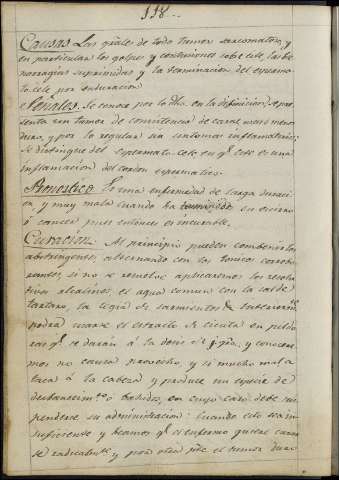 118..
Causas. Las grāles de todo tumor sarcomatoso, y
en particular los golpes y contusiones sobre este, las ble
norragias suprimidas y la terminacion del espermato
cele por induracion.
Señales. Se conoce por lo dho. en la definicion, se pre
senta un tumor de consistencia de carne mas o menos
dura, y por lo regular sin sintomas inflamatorios;
se distingue del espermato-cele en q.e este es una
inflamacion del cordon espermatico.
Pronostico. Es una enfermedad de larga duraci
on y muy mala cuando ha su escirro
ó cancer pues entonces es incurable.
Curacion. Al principio pueden combenir los
abstringentes, alternando con los tonicos corrobo
rantes, si no se resuelve aplicaremos los resolu
tivos alcalinos, el agua comun con la sal de
tartaro, la legia de sarmientos &. Interiorm.te
podrá usarse el extracto de cicuta en pildo
ras q.e se darán á la dosis de y conoce
mos no causa provecho, y si mucho mal a
taca á la cabeza y produce una especie de
desbanecim.to, bahidos, en cuyo caso debe sus
penderse su administracion: Cuando esto no es
suficiente y beamos q.e el enfermo quiere curar
se radicalm.te y por otra p.te el tumor dura